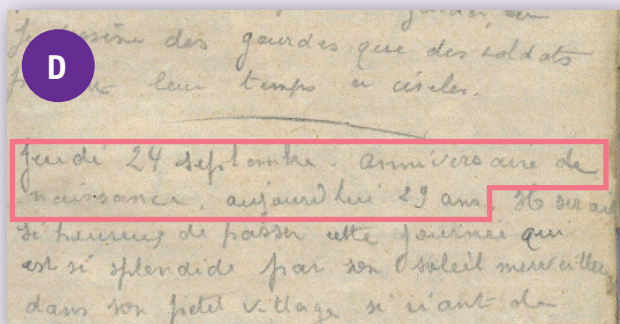 D
dessine des gourdes que des soldats
leur temps a ciseler.
Jeudi 24 septembre. anniversaire de
naissance. aujourd'hui 29 ans.
si heureux de passer cette journée qui
est si splendide par son soleil merveilleu
dans son petit village si riant de